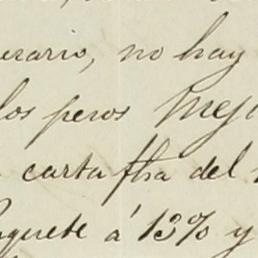 erario, no hay
los pesos Meji
carta fha del
aquete á 13% y